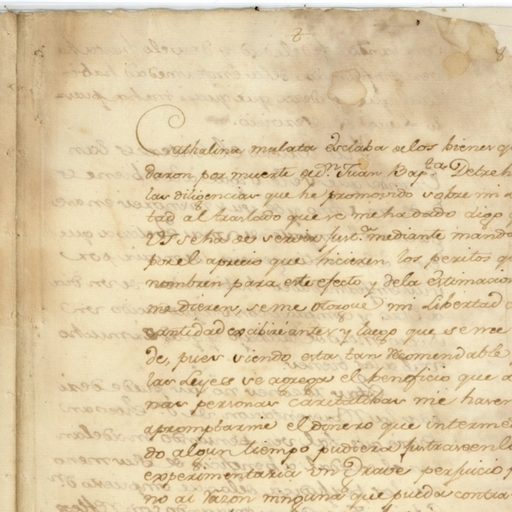 Cathalina mulata Esclaba de los bienes q
daron por muerte de Dn. Juan Bapta. De
las diligencias que he promovido sobre mi
tad al traslado que se me ha dado digo q
VS se ha de servir just.a mediante mand
por el aprecio que hicieren los peritos q
nombren para este efecto y de la estimacion
me dieren, se me otorgue mi Libertad
cantidad exibiré antes y luego que se me
de, pues siendo esta tan Recomendable
las Leyes se agrega el beneficio que
nas personas caritatibas me hacen
apromptarme el dinero que interme
do algun tiempo pudiera
experimentaria un Grave perjuicio
no ai razon ninguna que pueda contra